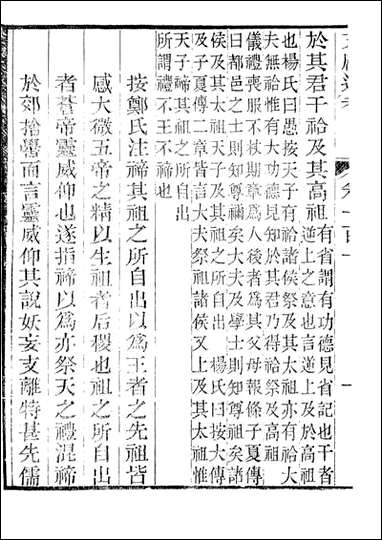 文獻通考 卷一百一 一
於其君干祫及其高祖有省謂有功德見省記也干者
逆上之意也言逆上及於高祖
也楊氏曰愚按天子有祫諸侯祭及其太祖亦有祫大
夫無祫惟有大功德見知於其君乃得祫祭及高祖
儀禮喪服不杖期章爲人後者爲其父母報條子夏傳
曰都邑之士則知尊禰矣大夫及學士則知尊祖矣諸
侯及其太祖天子及其祖之所自出　楊氏曰按大傳
及子夏傳二章皆言大夫祭祖諸侯又上及其太祖惟
天子禘其祖之所自出
所謂禮不王不禘也
按鄭氏注禘其祖之所自出以爲王者之先祖皆
感大微五帝之精以生祖者后稷也祖之所自出
者蒼帝靈威仰也遂指禘以爲亦祭天之禮混禘
於郊捨嚳而言靈威仰其說妖妄支離特甚先儒